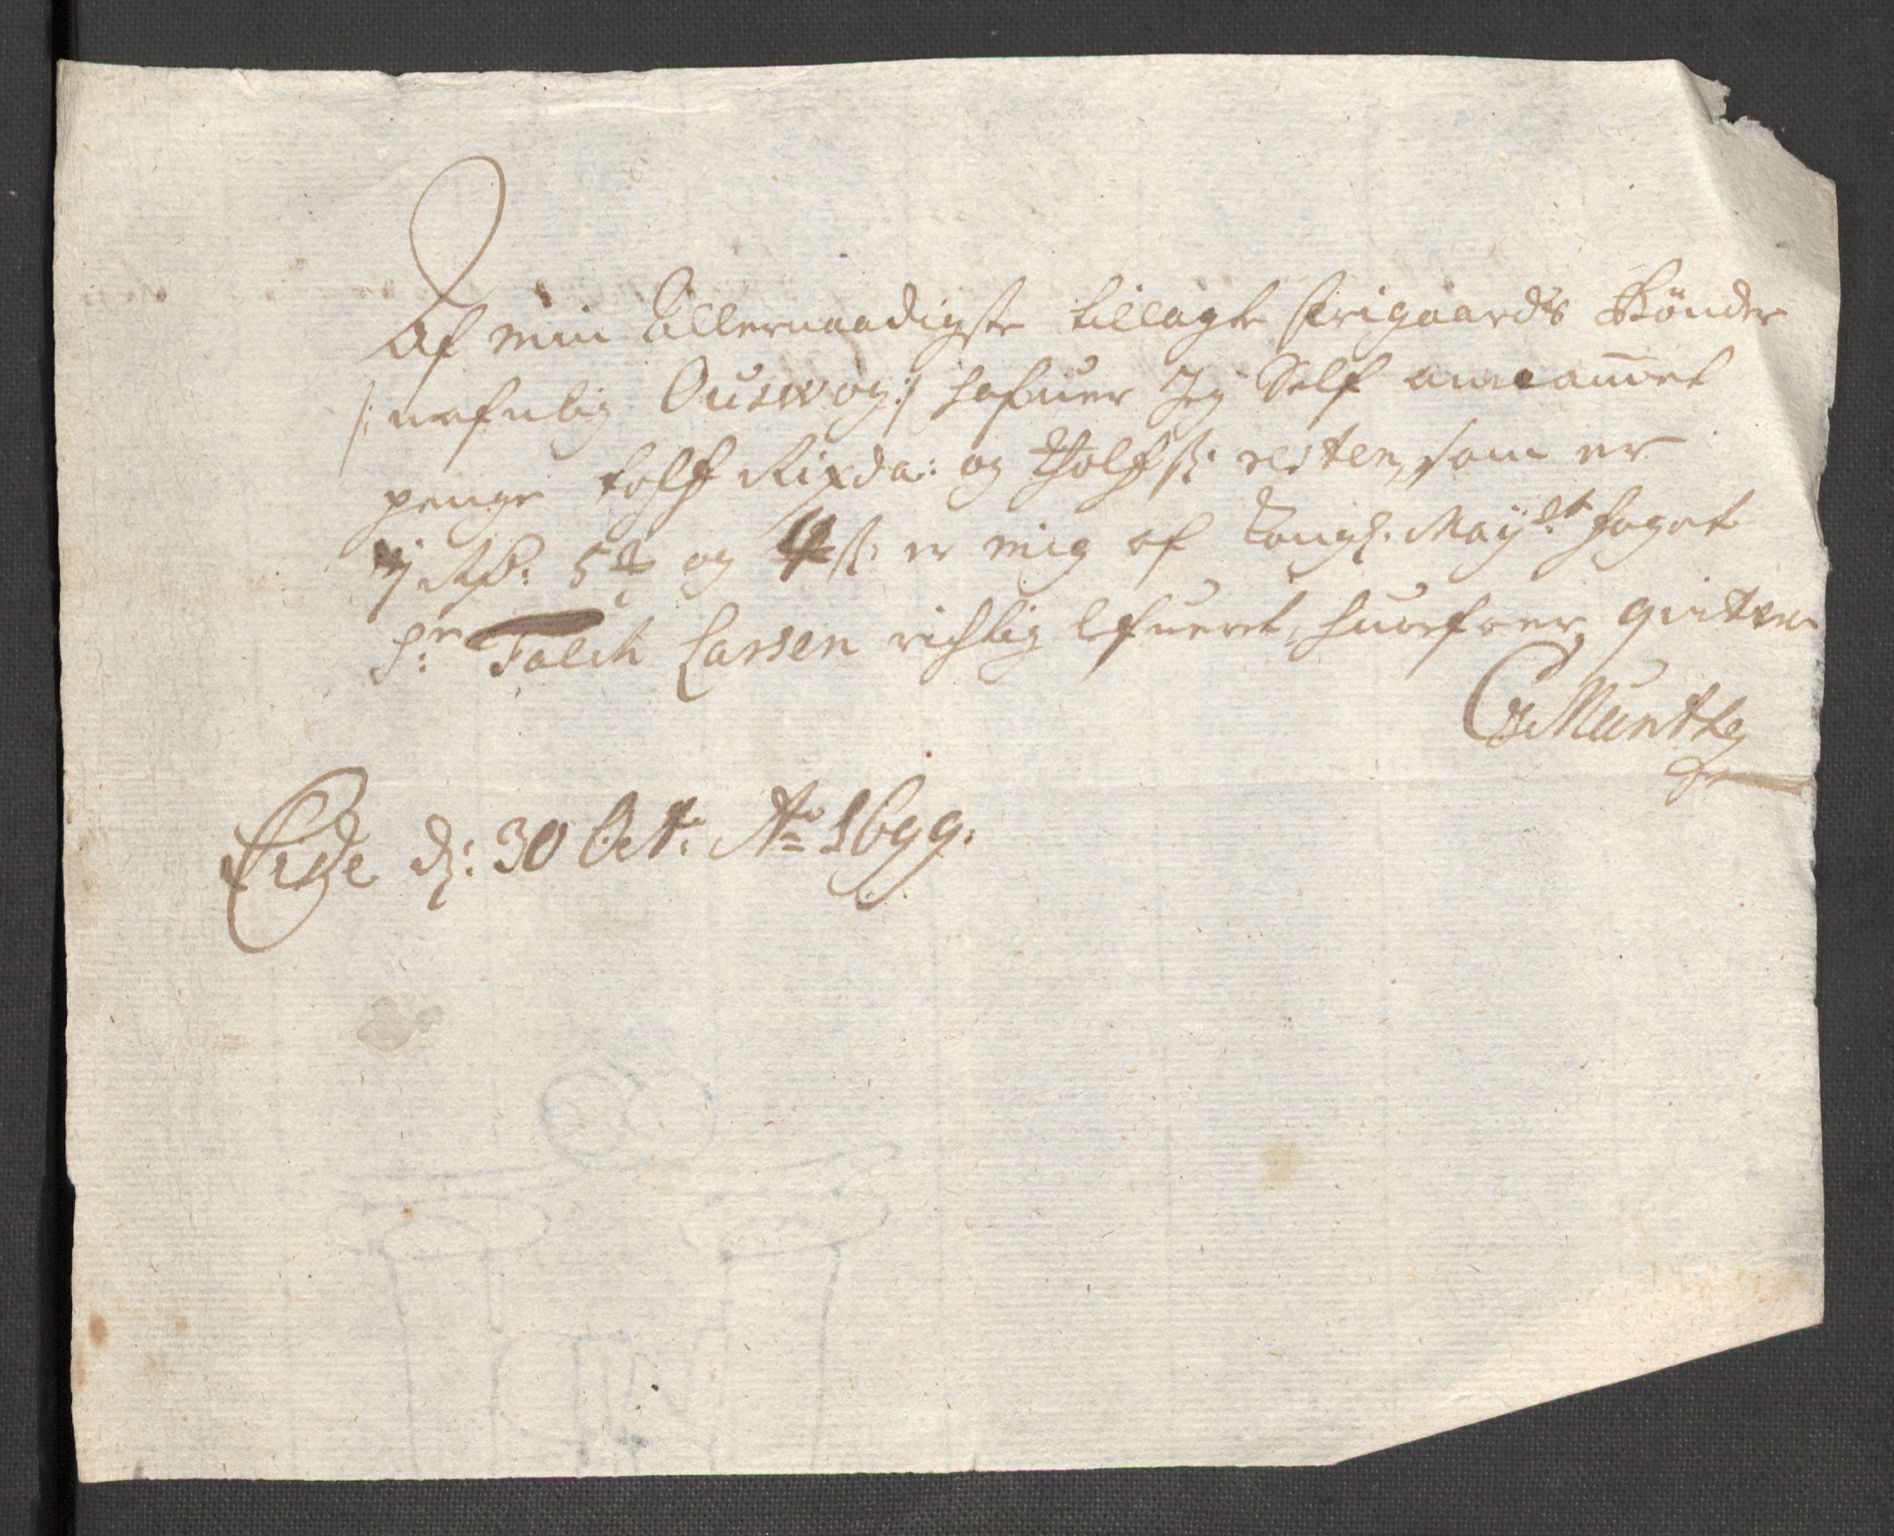 Af min Allernaadigste tillagte frigaards Bönder
/: nafnlig Ouswog :/ hafuer Jeg Self annammet
penge tolff Rixda: og Tholff ß: resten, som er
og ß: er mig af Kongl: May.ts foget
Sr: Falch Larsen richtig lefueret, huorfoer qvitterer
Munthe
Eide d: 30 Oct: Ao 1699.